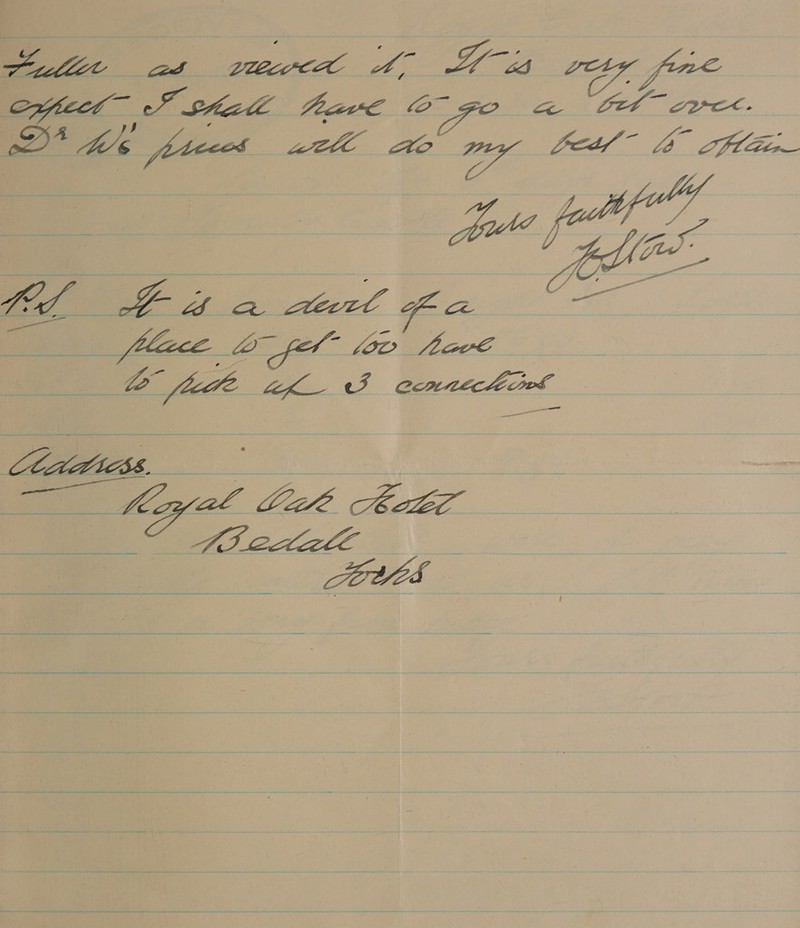 Fuller as viewed it, It is very fine
expect I shall have to go a bit over.
Dr W's prices will do my best to obtain
Yours faithfully
H. Stow.
P.S. It is a devil of a
place to get too have
to pick up 3 connections
Address.
Royal Oak Hotel
Bedall
Yorks